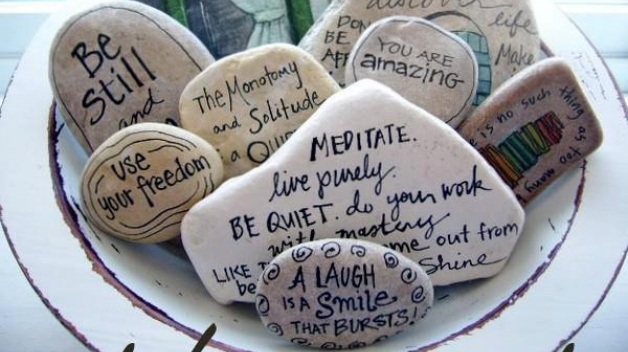 discover life
DON
BE
AF
Make
YOU ARE
amazing
Be
Still
and
The Monotomy
and Solitude
a QUI
is no such thing as
too
many
use
your freedom
MEDITATE.
live purely.
BE QUIET. do your work
with mastery
LIKE come out from
be Shine
A LAUGH
IS A Smile
THAT BURSTS!